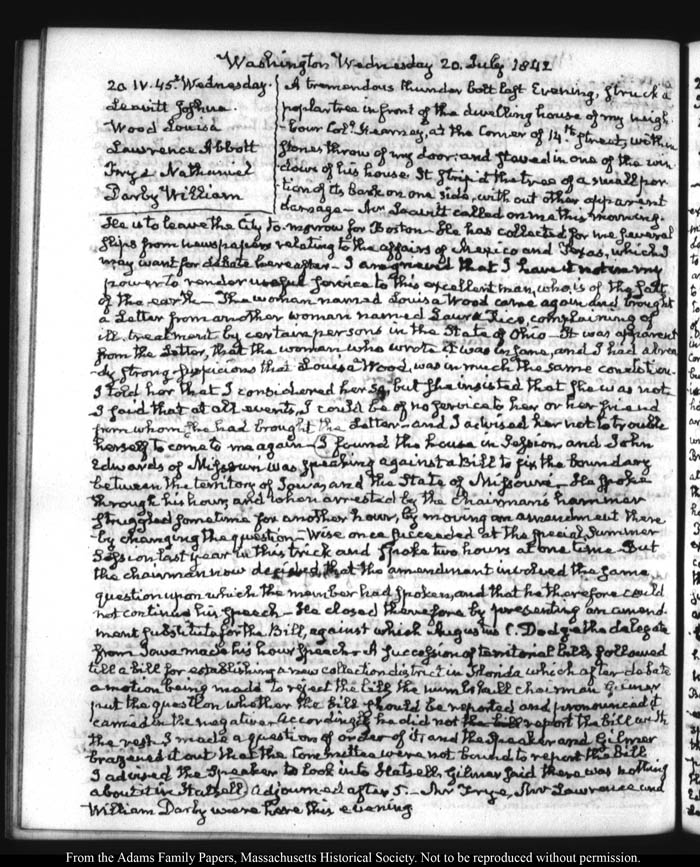 Washington Wednesday 20. July 1842
20. IV. 45.t Wednesday.
Leavitt Joshua.
Wood Louisa
Lawrence Abbott
Frye Nathaniel
Darby William
A tremendous thunder bolt last Evening, struck a
poplar tree in front of the dwelling house of my neigh-
bour Col.l Kearney, at the Corner of 14.th street, within
stones throw of my door: and staved in one of the win-
dows of his house. It strip'd the tree of a small por-
tion of its bark on one side, without other apparent
damage — Mr Leavitt called on me this morning.
He is to leave the City to-morrow for Boston — He has collected for me several
slips from newspapers relating to the affairs of Mexico and Texas, which I
may want for debate hereafter — I am grieved that I have it not in my
power to render useful service to this excellent man, who, is of the salt
of the earth — The woman named Louisa Wood came again and brought
a Letter from another woman named Laura Rice, complaining of
ill-treatment by certain persons in the State of Ohio — It was apparent
from the Letter, that the woman who wrote it was insane, and I had alrea-
dy strong suspicions that Louisa Wood, was in much the same condition.
I told her that I considered her so, but she insisted that she was not
I said that at all events, I could be of no service to her or her friend
from whom she had brought the Letter — and I advised her not to trouble
herself to come to me again — I found the house in Session, and John
Edwards of Missouri was speaking against a Bill to fix the boundary
between the territory of Iowa, and the State of Missouri — He spoke
through his hour, and when arrested by the Chairman's hammer
struggled sometime for another hour, by moving an amendment there
by changing the question — Wise once succeeded at the special Summer
Session last year in this trick and spoke two hours at one time — But
the chairman now decided that the amendment involved the same
question upon which the member had spoken, and that he therefore could
not continue his speech — He closed therefore by presenting an amend-
ment substitute for the Bill, against which Augustus C. Dodge the delegate
from Iowa made his hour speech — A succession of territorial bills followed
till a bill for establishing a new collection district in Florida which after debate
a motion being made to reject the bill the numskull chairman Gilmer
put the question whether the bill should be reported and pronounced it
carried in the negative. Accordingly he did not the bill report the bill with
the rest I made a question of order of it; and the Speaker and Gilmer
brazened it out that the Committee were not bound to report the bill
I advised the Speaker to look into Hatsell. Gilmer said there was nothing
about it in Hatsell) adjourned after 5. — Mr Frye, Mr Lawrence and
William Darby were here this evening
From the Adams Family Papers, Massachusetts Historical Society. Not to be reproduced without permission.